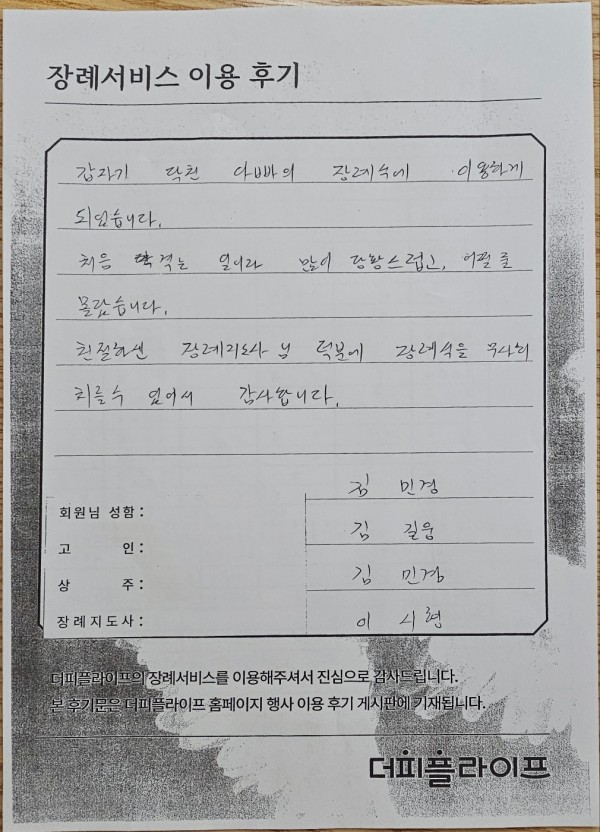 장례서비스 이용 후기
갑자기 닥친 아빠의 장례식에 이용하게
되었습니다.
처음 겪는 일이라 많이 당황스럽고, 어쩔줄
몰랐습니다.
친절하신 장례지도사 님 덕분에 장례식을 무사히
치를수 있어서 감사합니다.
회원님 성함: 김 민경
고 인: 김 길웅
상 주: 김 민경
장례지도사: 이 시형
더피플라이프의 장례서비스를 이용해주셔서 진심으로 감사드립니다.
본 후기문은 더피플라이프 홈페이지 행사 이용 후기 게시판에 기재됩니다.
더피플라이프